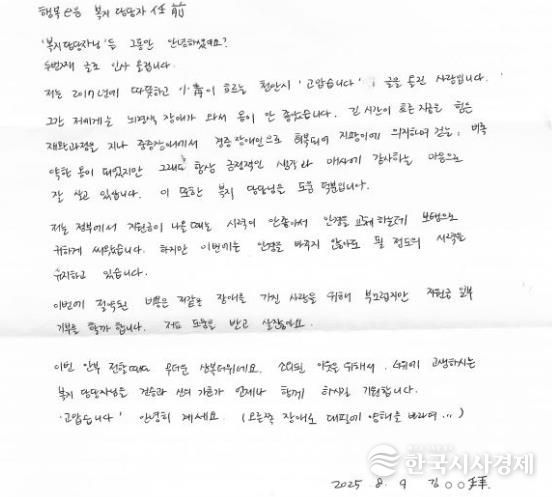 행복e음 복지 담당자 任 前
'복지담당자님'들 그동안 안녕하셨어요?
두번째 글로 인사 올립니다.
저는 2017년에 따뜻하고 흐르는 천안시 '고맙습니다', 글을 올린 사람입니다.
그간 저에게는 뇌경색 장애가 와서 몸이 안 좋았습니다. 긴 시간이 흐른 지금은 힘든
재활과정을 지나 중증장애에서 경증장애인으로 회복되어 지팡이에 의지하여 걷는, 비록
약한 몸이 되었지만 그래도 항상 긍정적인 생각과 매사에 감사하는 마음으로
잘 살고 있습니다. 이 또한 복지 담당님들 도움 덕분입니다.
저는 정부에서 지원금이 나올때는 시력이 안좋아서 안경을 교체 하는데 보탬으로
귀하게 썼습니다. 하지만 이번에는 안경을 바꾸지 않아도 될 정도의 시력을
유지하고 있습니다.
이번에 절약된 비용은 저같은 장애를 가진 사람을 위해 부끄럽지만 지원금 일부
기부를 할까 합니다. 저도 도움을 받고 살잖아요.
이번 안부 전할때는 무더운 삼복더위네요. 소외된 이웃을 위해서, 더위에 고생하시는
복지 담당자님들 건승과 신의 가호가 언제나 함께 하시길 기원합니다.
'고맙습니다' 안녕히 계세요. (오른쪽 장애로 대필에 양해를 바라며...)
2025 8. 9 김○○拜.
한국시사경제